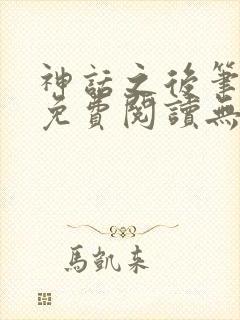 神話之後筆
免費閱讀無
馬凱來